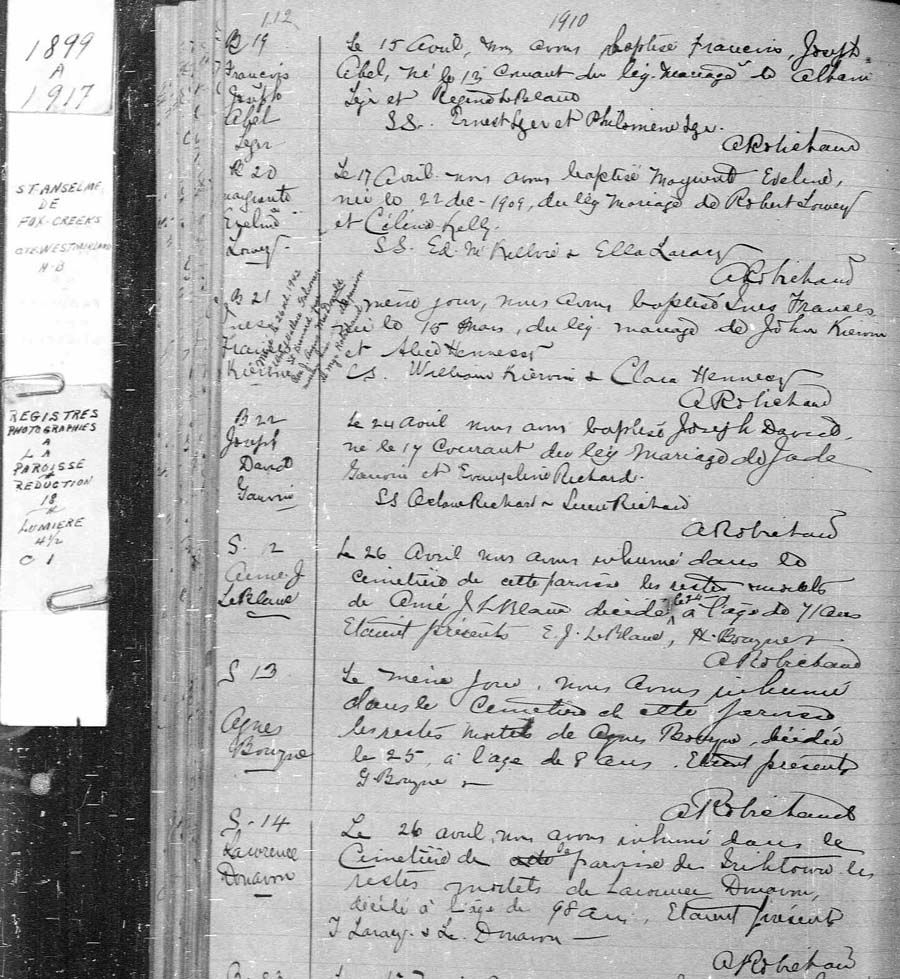 1899
A
1917
ST. ANSELME
DE
FOX-CREEKS
CTE. WESTMORLAND
N-B
REGISTRES
PHOTOGRAPHIES
A
LA
PAROISSE
REDUCTION
18
LUMIERE
4½
C 1
112
1910
B 19
Francois
Joseph
Abel
Leger
Le 15 Avril, nous avons baptisé Francois, Joseph,
Abel, né le 13 courant du lég. mariage de
Leger et Regina LeBlanc
SS. Ernest Leger et Philomène Leger.
A Robichaud
B 20
Marguerite
Eveline
Lowey
Le 17 Avril nous avons baptisé Margueret Eveline,
née le 22 dec- 1909, du lég mariage de Robert Lowey
et Céline Kelly.
SS. Ed. McKelvie & Ella Laracy
A Robichaud
B 21
Ines
Francis
Kiervin
même jour, nous avons baptisé Ines Frances
née le 15 Mars, du lég. mariage de John Kiervin
et Alice Hennessy
SS. William Kiervin & Clara Hennessy
A Robichaud
B 22
Joseph
David
Gauvin
Le 24 Avril nous avons baptisé Joseph David,
né le 17 courant du lég mariage de Jade
Gauvin et Evangeline Richard.
SS Octave Richard & Lucie Richard
A Robichaud
S. 12
Aimé J
LeBlanc
Le 26 Avril nous avons inhumé dans le
cimetière de cette paroisse les restes mortels
de Aimé J. LeBlanc décédé le 24 à l'âge de 71 ans
Etaient présents E. J. LeBlanc, H. Bourque
A Robichaud
S 13
Agnes
Bourque
Le même jour, nous avons inhumé
dans le cimetière de cette paroisse
les restes mortels de Agnes Bourque, décédée
le 25 à l'age de 8 ans. Etaient présents
G Bourque
A Robichaud
S-14
Lawrence
Donavon
Le 26 avril, nous avons inhumé dans le
Cimetière de la paroisse de Irishtown les
restes mortels de Lawrence Donavon,
décédé à l'âge de 98 ans, Etaient présents
T Laracy & Le. Donavon
A Robichaud